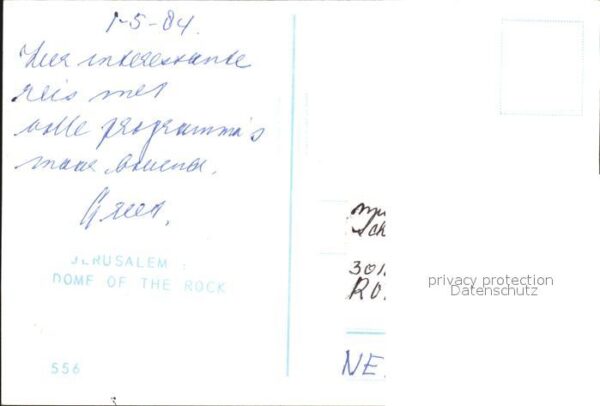 1-5-84.
Zeer interessante
reis met
volle programma's
maar boeiend.
JERUSALEM :
DOME OF THE ROCK
556
301
RO
NE
privacy protection
Datenschutz